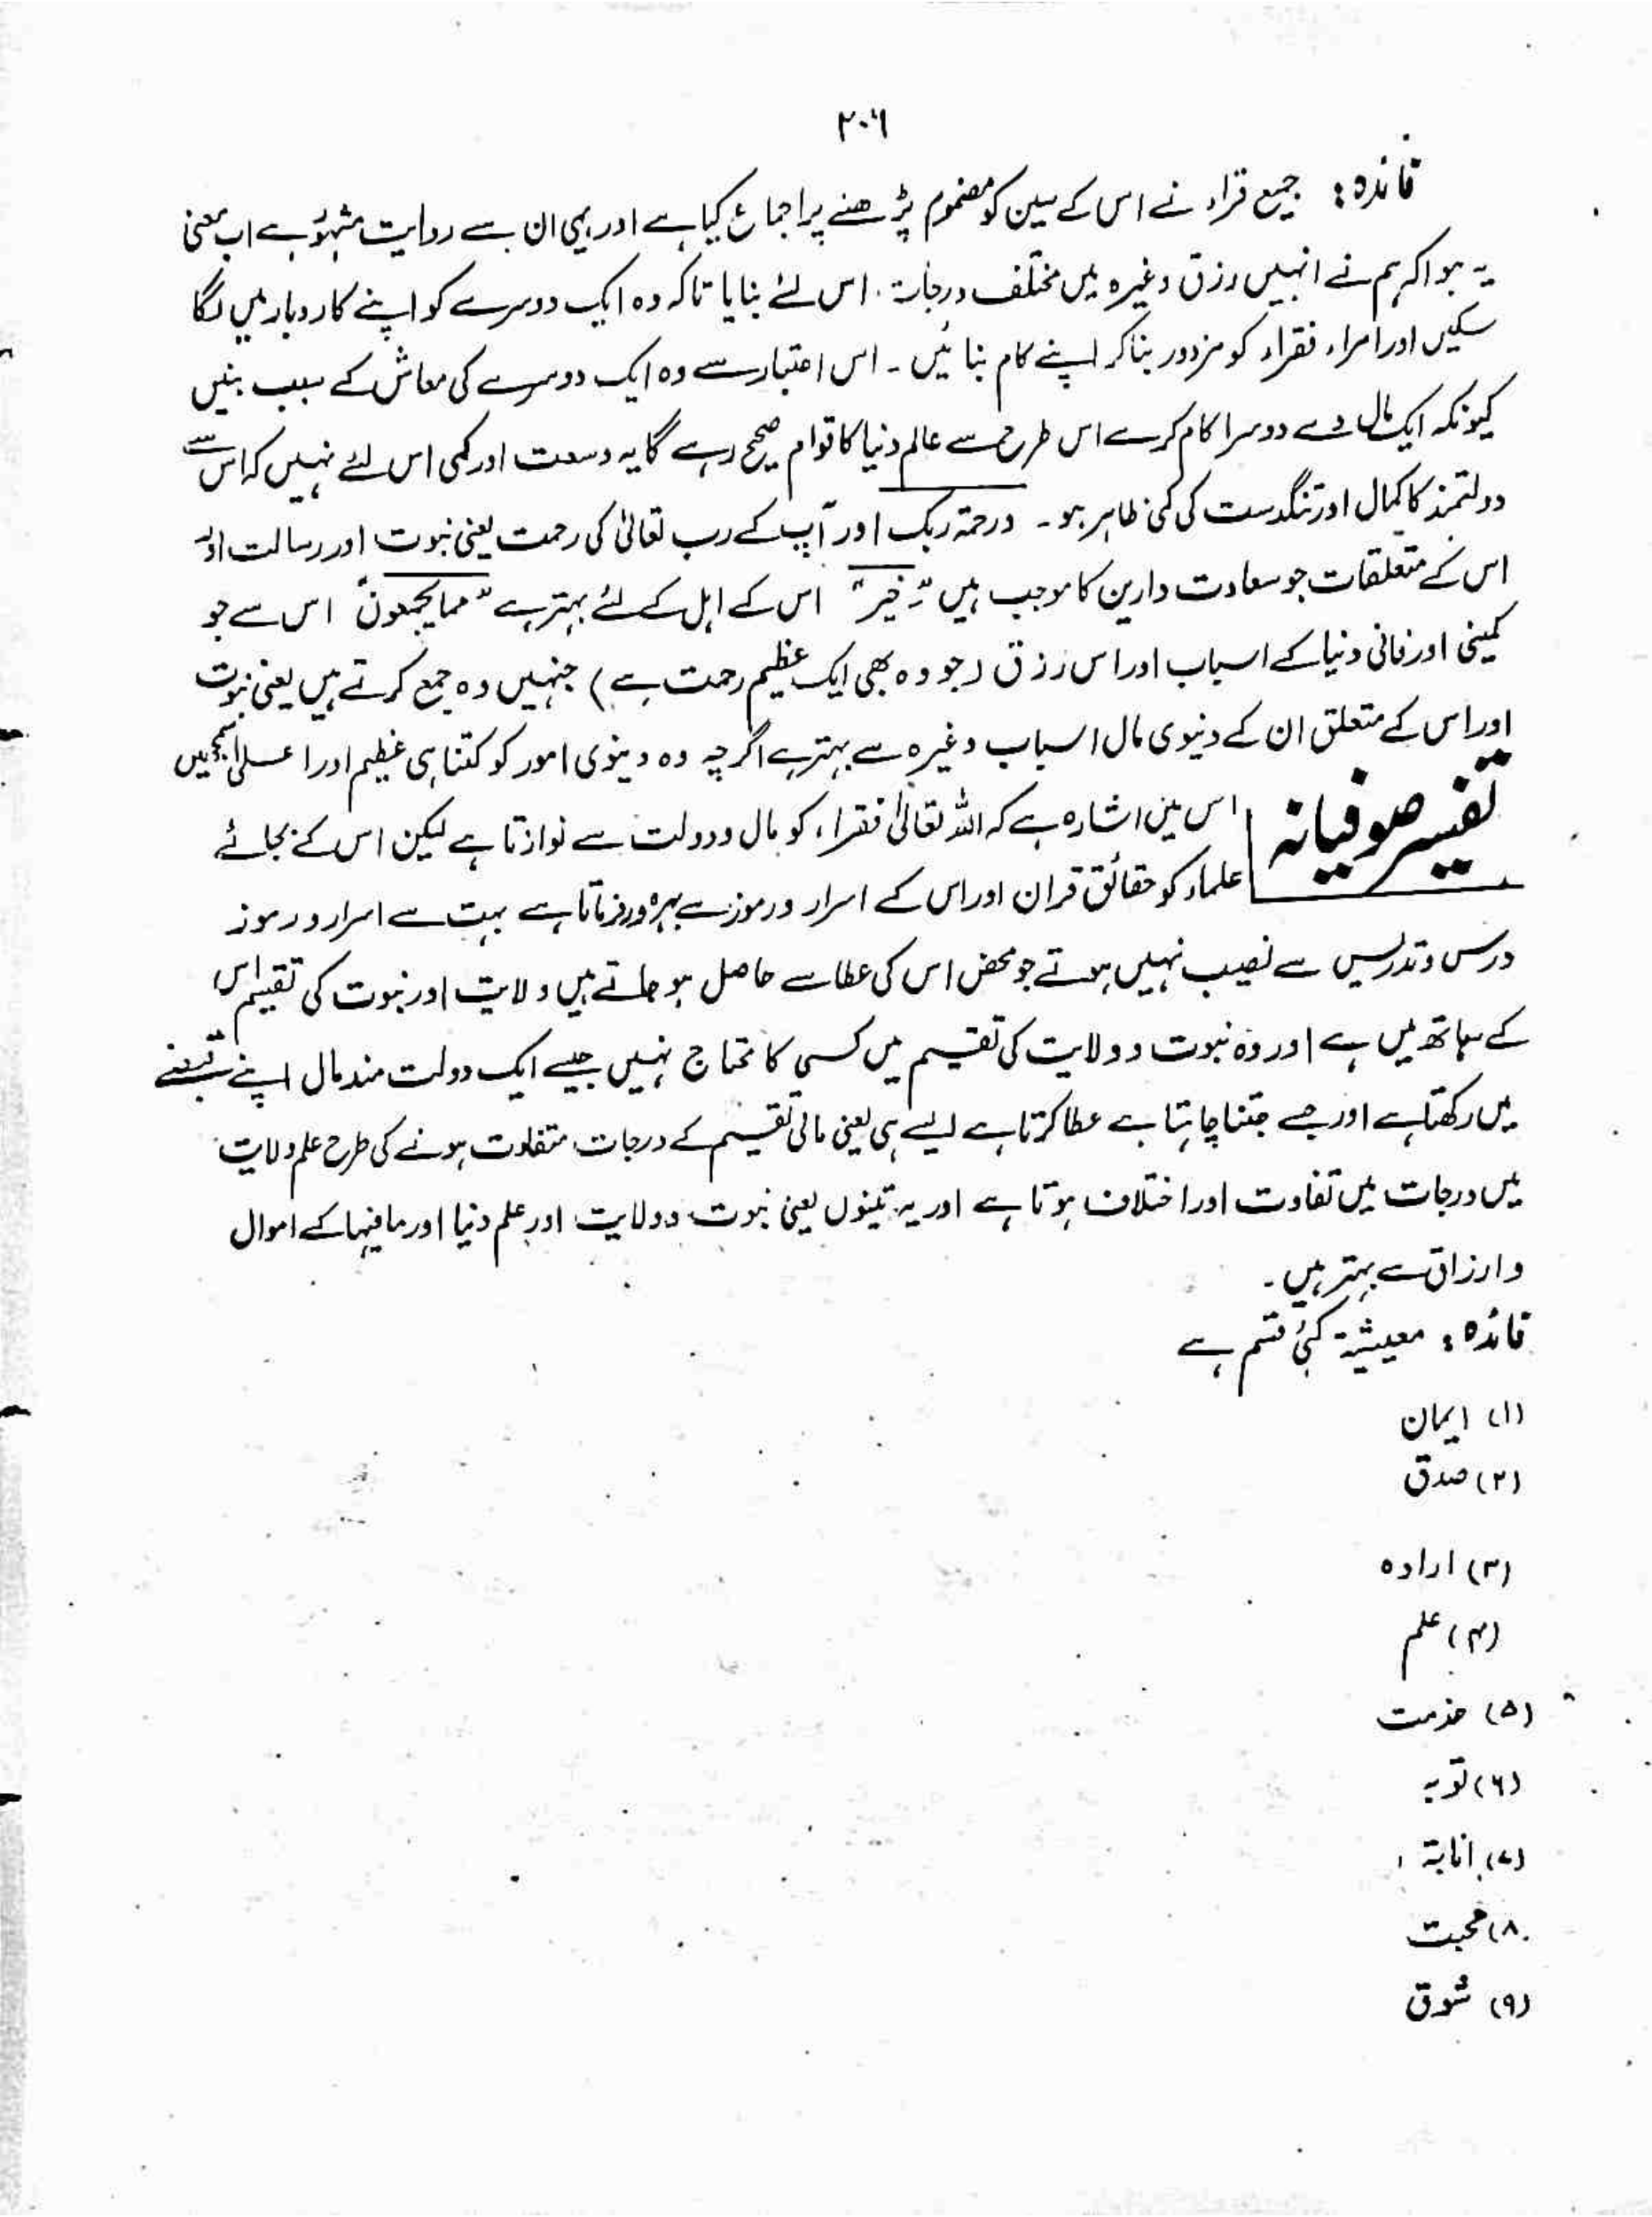 ۲۰۶
فائدہ: جمیع قراء نے اس کے سین کو مضموم پڑھنے پر اجماع کیا ہے اور یہی ان سے روایت مشہور ہے اب معنی
یہ ہوا کہ ہم نے انہیں رزق وغیرہ میں مختلف درجات، اس لئے بنایا تاکہ وہ ایک دوسرے کو اپنے کاروبار میں لگا
سکیں اور امراء فقراء کو مزدور بنا کر اپنے کام بنائیں ۔ اس اعتبار سے وہ ایک دوسرے کی معاش کے سبب بنیں
کیونکہ ایک مال دے دوسرا کام کرے اس طرح سے عالم دنیا کا قوام صحیح رہے گا یہ وسعت اور کمی اس لئے نہیں کہ اس سے
دولتمند کا کمال اور تنگدست کی کمی ظاہر ہو ۔ ورحمۃ ربک اور آپ کے رب تعالیٰ کی رحمت یعنی نبوت اور رسالت اور
اس کے متعلقات جو سعادت دارین کا موجب ہیں "خیر" اس کے اہل کے لئے بہتر ہے "مما یجمعون" اس سے جو
کمینی اور فانی دنیا کے اسباب اور اس رزق (جو وہ بھی ایک عظیم رحمت ہے) جنہیں وہ جمع کرتے ہیں یعنی نبوت
اور اس کے متعلق ان کے دنیوی مال اسباب وغیرہ سے بہتر ہے اگرچہ وہ دنیوی امور کو کتنا ہی عظیم اور اعلیٰ سمجھیں
تفسیر صوفیانہ
اس میں اشارہ ہے کہ اللہ تعالیٰ فقراء کو مال و دولت سے نوازتا ہے لیکن اس کے بجائے
علماء کو حقائق قران اور اس کے اسرار ورموز سے بہرہ ور فرماتا ہے بہت سے اسرار و رموز
درس و تدریس سے نصیب نہیں ہوتے جو محض اس کی عطا سے حاصل ہو جاتے ہیں ولایت اور نبوت کی تقسیم اس
کے ہاتھ میں ہے اور وہ نبوت و ولایت کی تقسیم میں کسی کا محتاج نہیں جیسے ایک دولت مند مال اپنے قبضے
میں رکھتا ہے اور جسے جتنا چاہتا ہے عطا کرتا ہے ایسے ہی یعنی مالی تقسیم کے درجات متفاوت ہونے کی طرح علم ولایت
میں درجات میں تفاوت اور اختلاف ہوتا ہے اور یہ تینوں یعنی نبوت و ولایت اور علم دنیا اور مافیہا کے اموال
وارزاق سے بہتر ہیں ۔
فائدہ: معیشۃ کئی قسم ہے
(۱) ایمان
(۲) صدق
(۳) ارادہ
(۴) علم
(۵) خدمت
(۶) توبہ
(۷) انابۃ
(۸) محبت
(۹) شوق